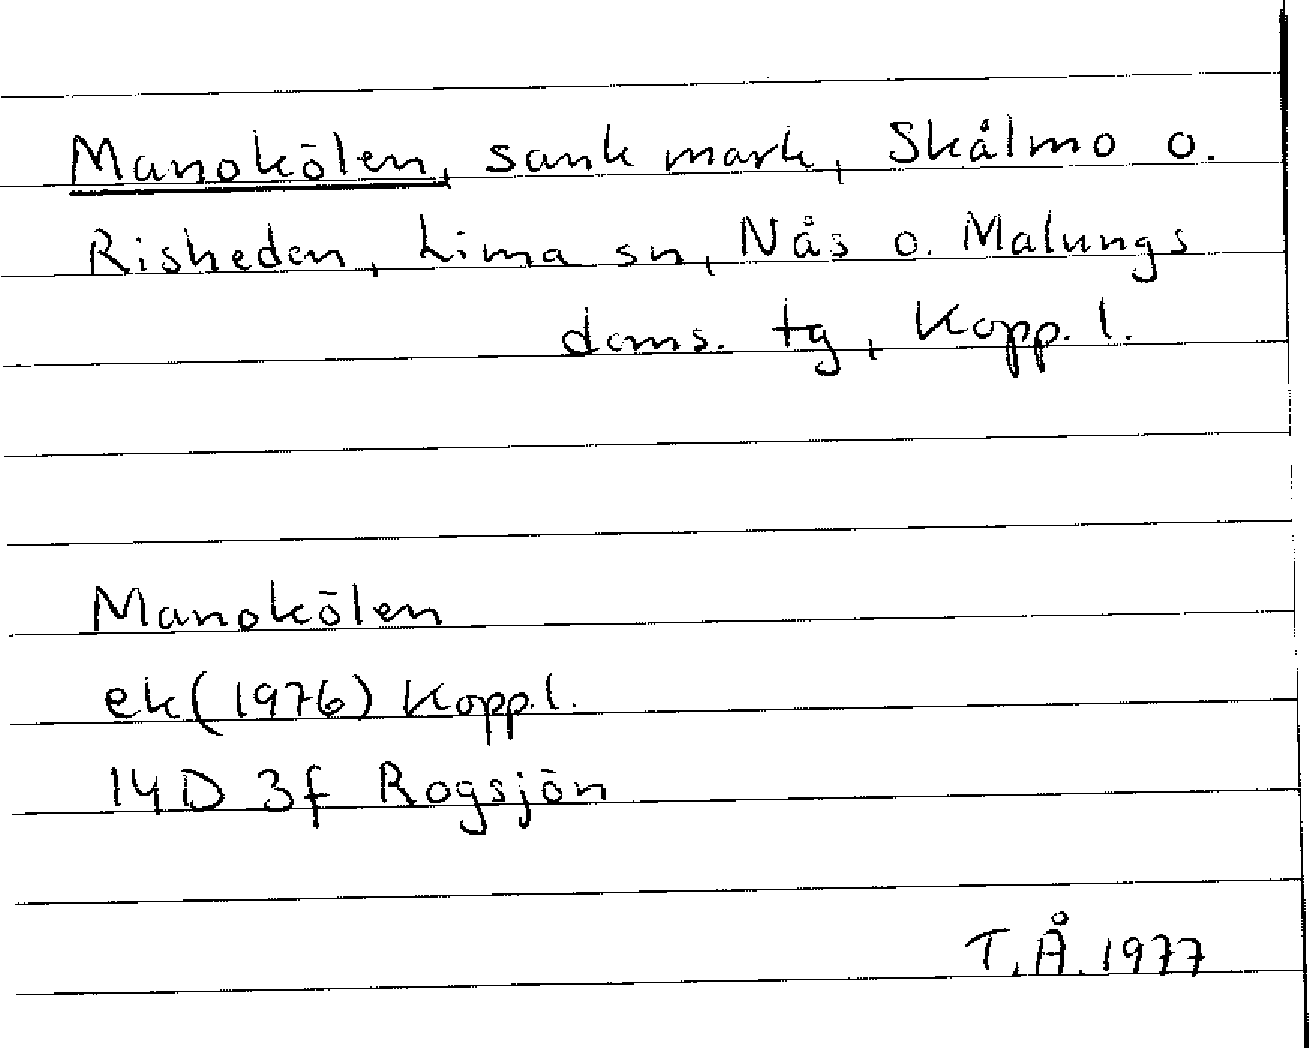 Manokölen, sank mark, Skålmo o.
Risheden, Lima sn, Nås o. Malungs
doms. tg, Kopp. l.
Manokölen
ek (1976) Kopp.l.
14D 3f Rogsjön
T.Å. 1977